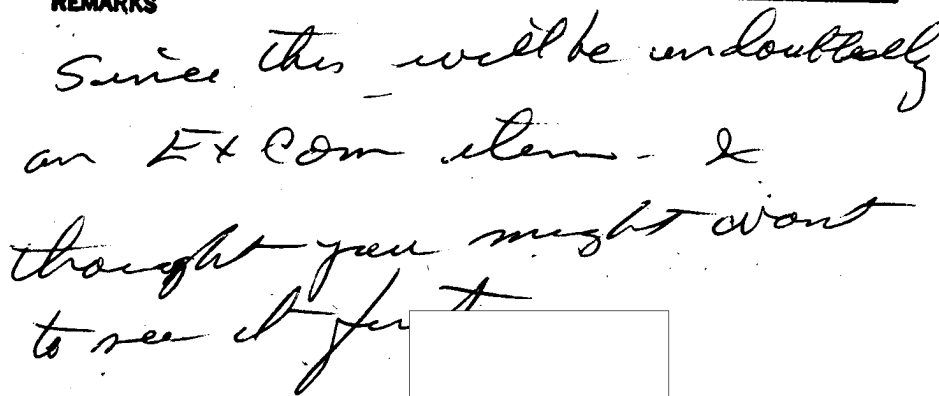 REMARKS
Since this will be undoubtedly
an ExCom item - I
thought you might want
to see it first